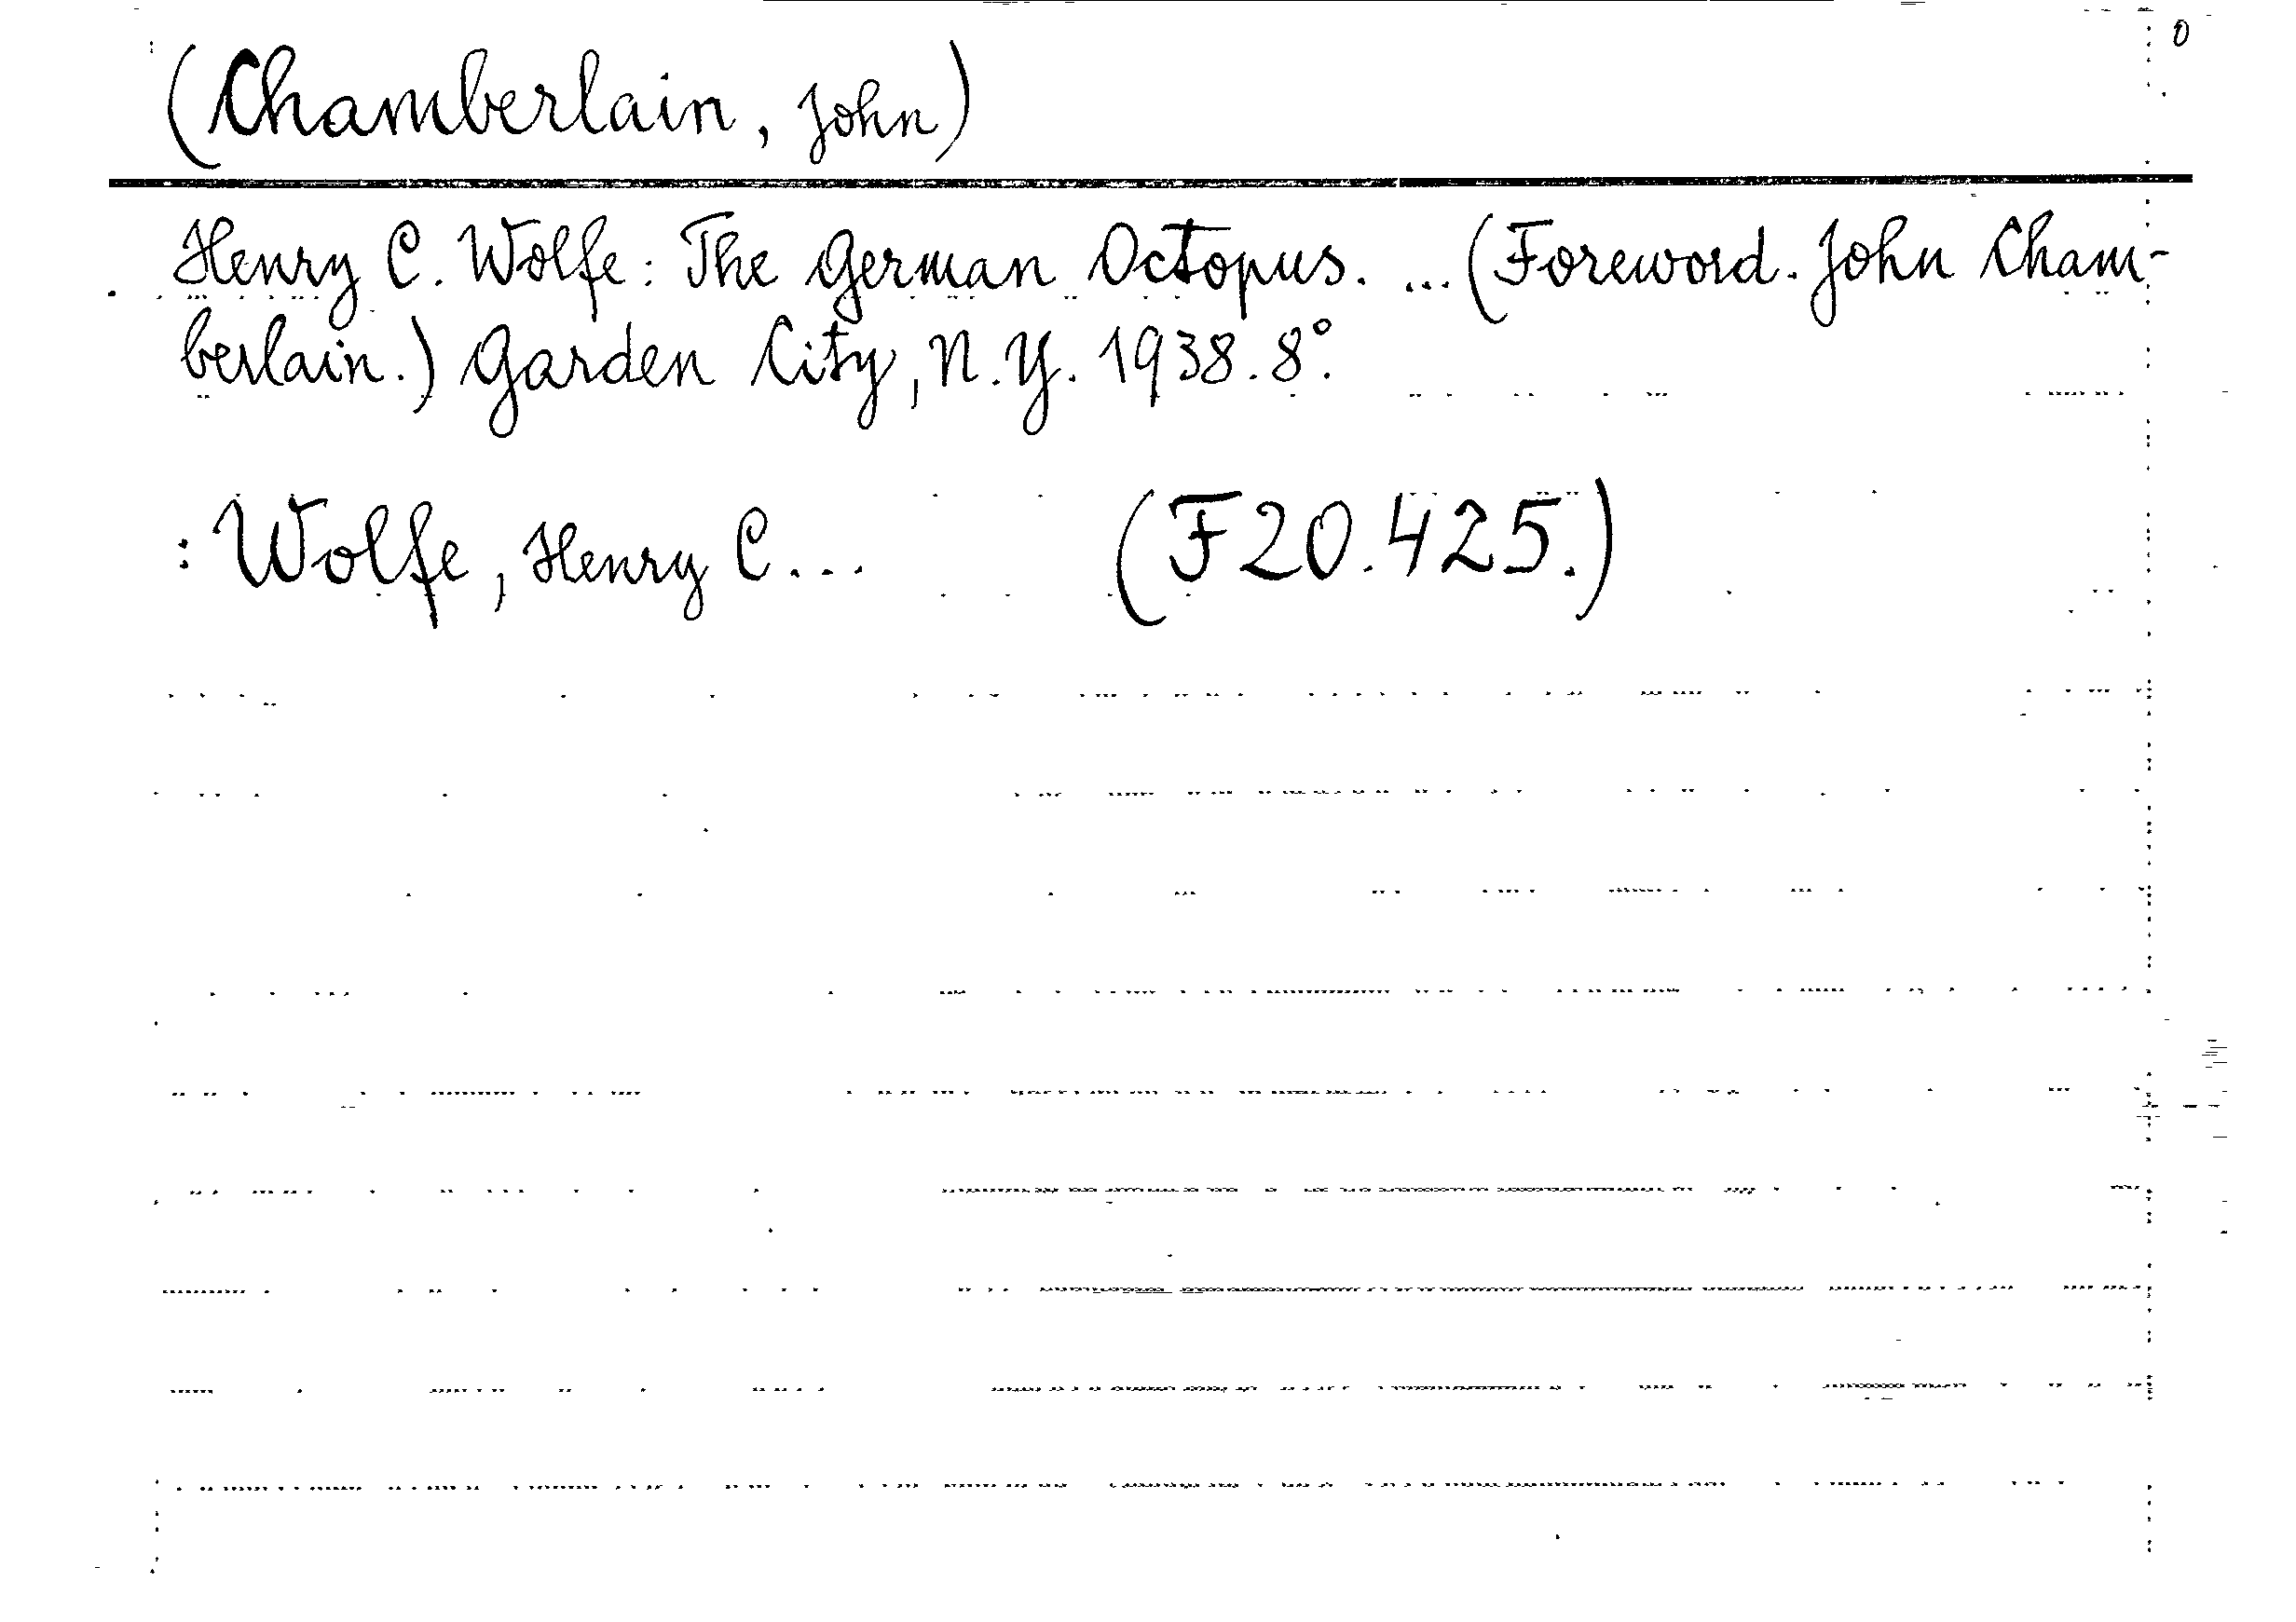 0
(Chamberlain, John)
Henry C. Wolfe: The German Octopus. ... (Foreword. John Cham-
berlain.) Garden City, N.Y. 1938. 8°.
: Wolfe, Henry C... (F20.425.)